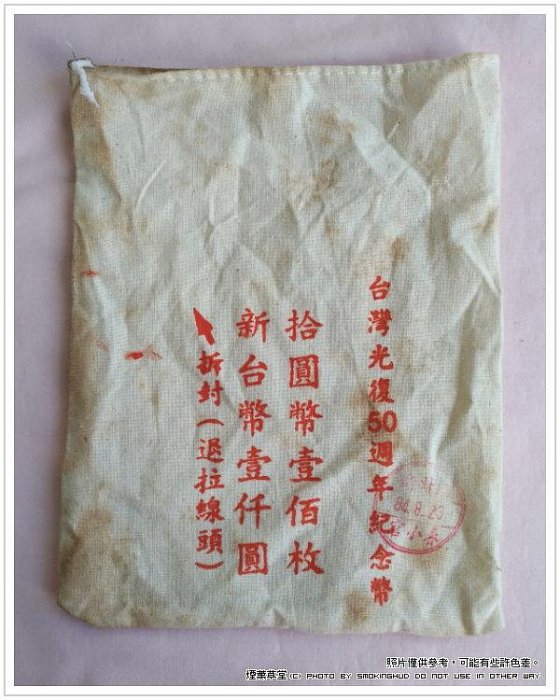 台灣光復50週年紀念幣
拾圓幣壹佰枚
新台幣壹仟圓
拆封(退拉線頭)
84.8.23
照片僅供參考，可能有些許色差。
煙華商堂(C) PHOTO BY SMOKINGHUD DO NOT USE IN OTHER WAY